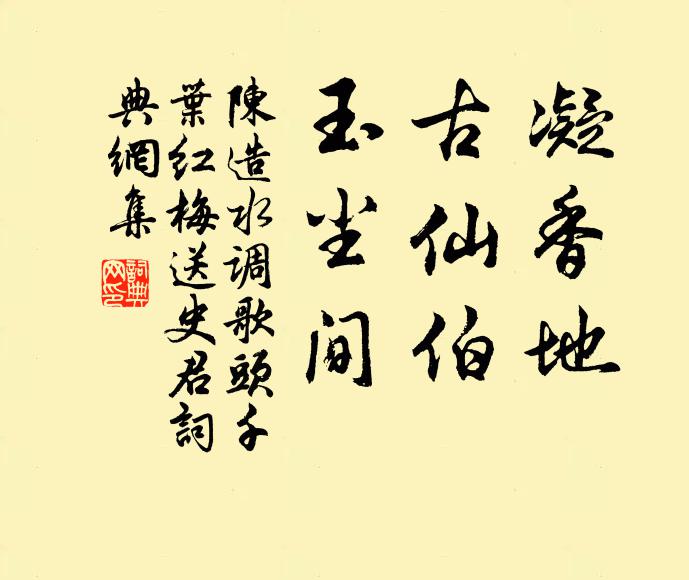 凝香地
古仙伯
玉尘间
陳造水调歌頭千
葉红梅送史君詞
典網集
詞典网印